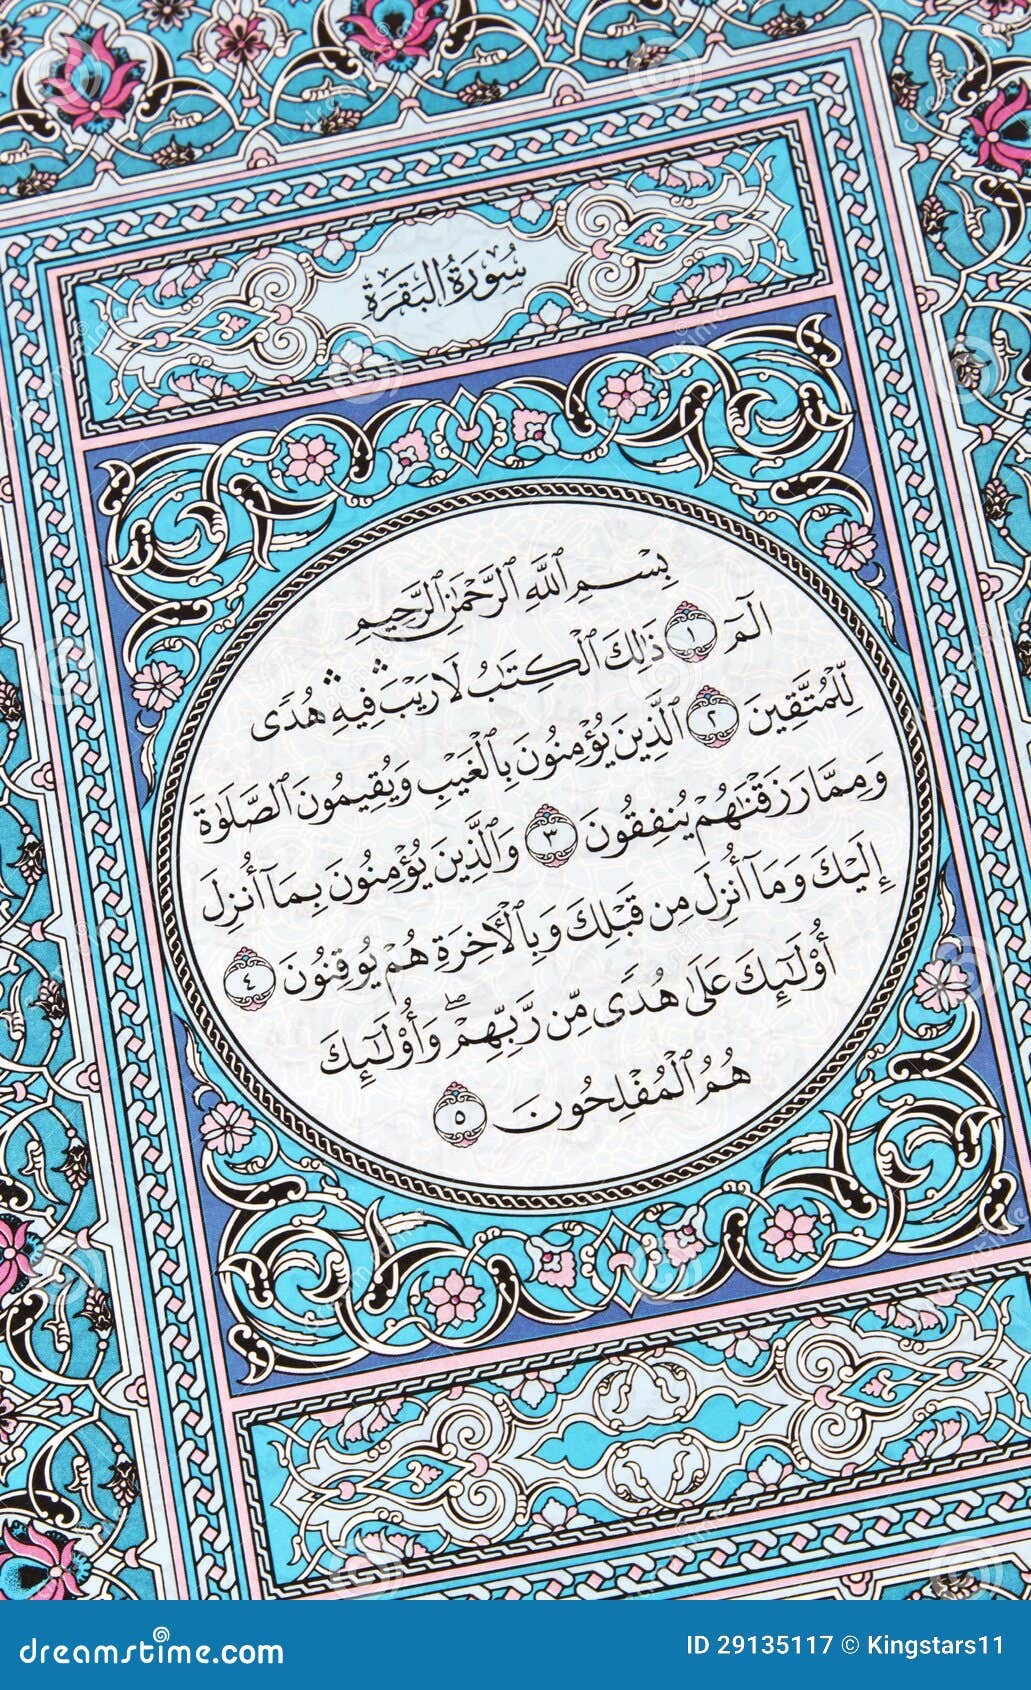 سُورَةُ البَقَرَةِ
بِسْمِ ٱللَّهِ ٱلرَّحْمَٰنِ ٱلرَّحِيمِ
الٓمٓ ١ ذَٰلِكَ ٱلْكِتَٰبُ لَا رَيْبَ ۛ فِيهِ ۛ هُدًى
لِّلْمُتَّقِينَ ٢ ٱلَّذِينَ يُؤْمِنُونَ بِٱلْغَيْبِ وَيُقِيمُونَ ٱلصَّلَوٰةَ
وَمِمَّا رَزَقْنَٰهُمْ يُنفِقُونَ ٣ وَٱلَّذِينَ يُؤْمِنُونَ بِمَآ أُنزِلَ
إِلَيْكَ وَمَآ أُنزِلَ مِن قَبْلِكَ وَبِٱلْأَخِرَةِ هُمْ يُوقِنُونَ ٤
أُو۟لَٰٓئِكَ عَلَىٰ هُدًى مِّن رَّبِّهِمْ ۖ وَأُو۟لَٰٓئِكَ
هُمُ ٱلْمُفْلِحُونَ ٥
dreamstime.com
ID 29135117 © Kingstars11